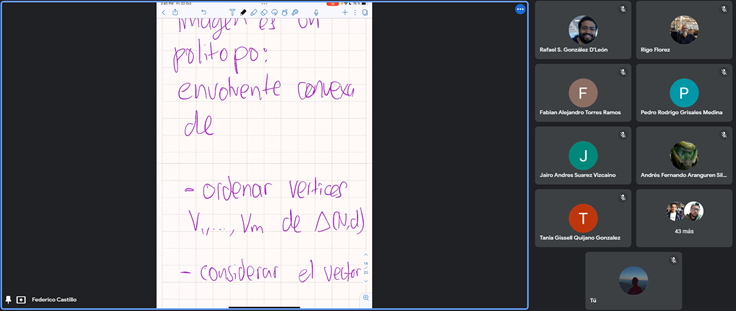 imagen es un
politopo:
envolvente convexa
de
- ordenar vertices
V1,..., Vm de Δ(N,d)
- considerar el vector
Federico Castillo
Rafael S. González D'León
Rigo Florez
F
Fabian Alejandro Torres Ramos
P
Pedro Rodrigo Grisales Medina
J
Jairo Andres Suarez Vizcaino
Andrés Fernando Aranguren Sil...
T
Tania Gissell Quijano Gonzalez
43 más
Tú